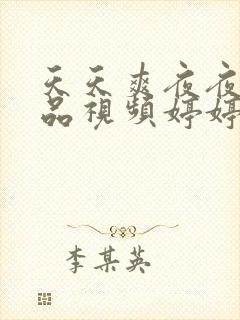 天天爽夜夜
品視頻婷婷
李某英